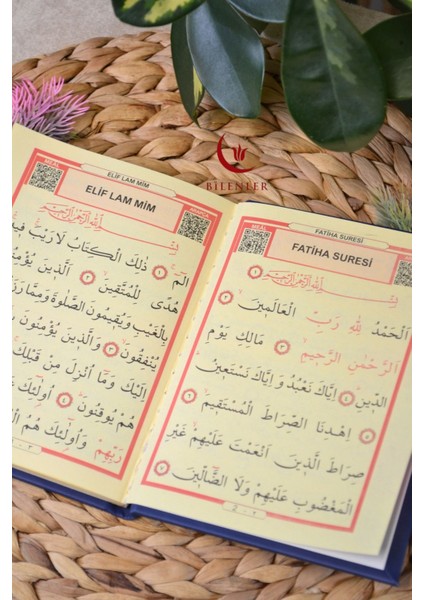 BİLENLER
FATİHA SURESİ
MEAL
FATİHA SURESİ
بِسْمِ اللّٰهِ الرَّحْمٰنِ الرَّحِيمِ ١
اَلْحَمْدُ لِلّٰهِ رَبِّ الْعَالَمِينَ ٢
اَلرَّحْمٰنِ الرَّحِيمِ ٣ مَالِكِ يَوْمِ
الدِّينِ ٤ اِيَّاكَ نَعْبُدُ وَاِيَّاكَ نَسْتَعِينُ ٥
اِهْدِنَا الصِّرَاطَ الْمُسْتَقِيمَ ٦
صِرَاطَ الَّذِينَ اَنْعَمْتَ عَلَيْهِمْ غَيْرِ
الْمَغْضُوبِ عَلَيْهِمْ وَلَا الضَّالِّينَ ٧
ELİF LAM MİM
MEAL
ELİF LAM MİM
بِسْمِ اللّٰهِ الرَّحْمٰنِ الرَّحِيمِ
الٓمٓ ١ ذٰلِكَ الْكِتَابُ لَا رَيْبَ فِيهِ
هُدًى لِلْمُتَّقِينَ ٢ اَلَّذِينَ يُؤْمِنُونَ
بِالْغَيْبِ وَيُقِيمُونَ الصَّلٰوةَ وَمِمَّا رَزَقْنَاهُمْ
يُنْفِقُونَ ٣ وَالَّذِينَ يُؤْمِنُونَ
اِلَيْكَ وَمَا اُنْزِلَ مِنْ قَبْلِكَ
هُمْ يُوقِنُونَ ٤ اُولٰئِكَ
رَبِّهِمْ وَاُولٰئِكَ هُمُ